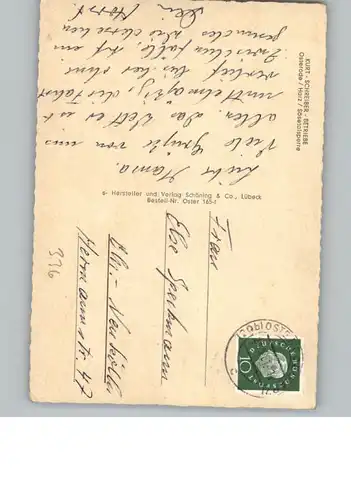 KURT-SCHREIBER-BETRIEBE
Osterode / Harz / Sösetalsperre
Liebe Mama.
Viele Grüße von uns
allen. Das Wetter ist
mittelmäßig, die Fahrt
verlief bisher ohne
Zwischenfälle. Auf ein
gesundes Wiedersehen
Dein Horst.
Hersteller und Verlag Schöning & Co., Lübeck
Bestell-Nr. Oster 1654
Frau
Else Speckmann
Bln.-Neukölln
Hermannstr. 47
336
DEUTSCHE BUNDESPOST
10